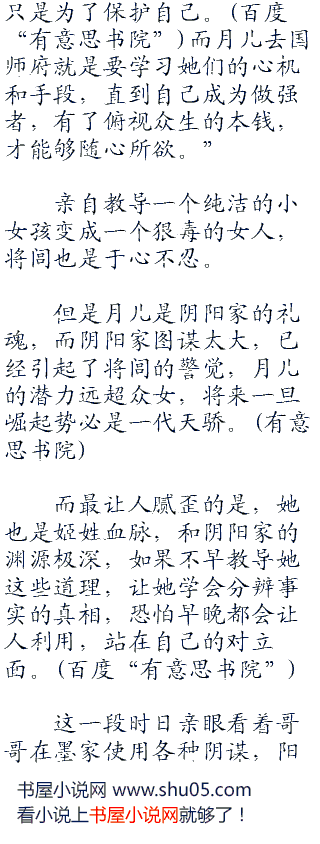 只是为了保护自己。(百度
“有意思书院”)而月儿去国
师府就是要学习她们的心机
和手段，直到自己成为做强
者，有了俯视众生的本钱，
才能够随心所欲。”
亲自教导一个纯洁的小
女孩变成一个狠毒的女人，
将闾也是于心不忍。
但是月儿是阴阳家的礼
魂，而阴阳家图谋太大，已
经引起了将闾的警觉，月儿
的潜力远超众女，将来一旦
崛起势必是一代天骄。(有意
思书院)
而最让人腻歪的是，她
也是姬姓血脉，和阴阳家的
渊源极深，如果不早教导她
这些道理，让她学会分辨事
实的真相，恐怕早晚都会让
人利用，站在自己的对立
面。(百度“有意思书院”)
这一段时日亲眼看着哥
哥在墨家使用各种阴谋，阳
书屋小说网 www.shu05.com
看小说上书屋小说网就够了！